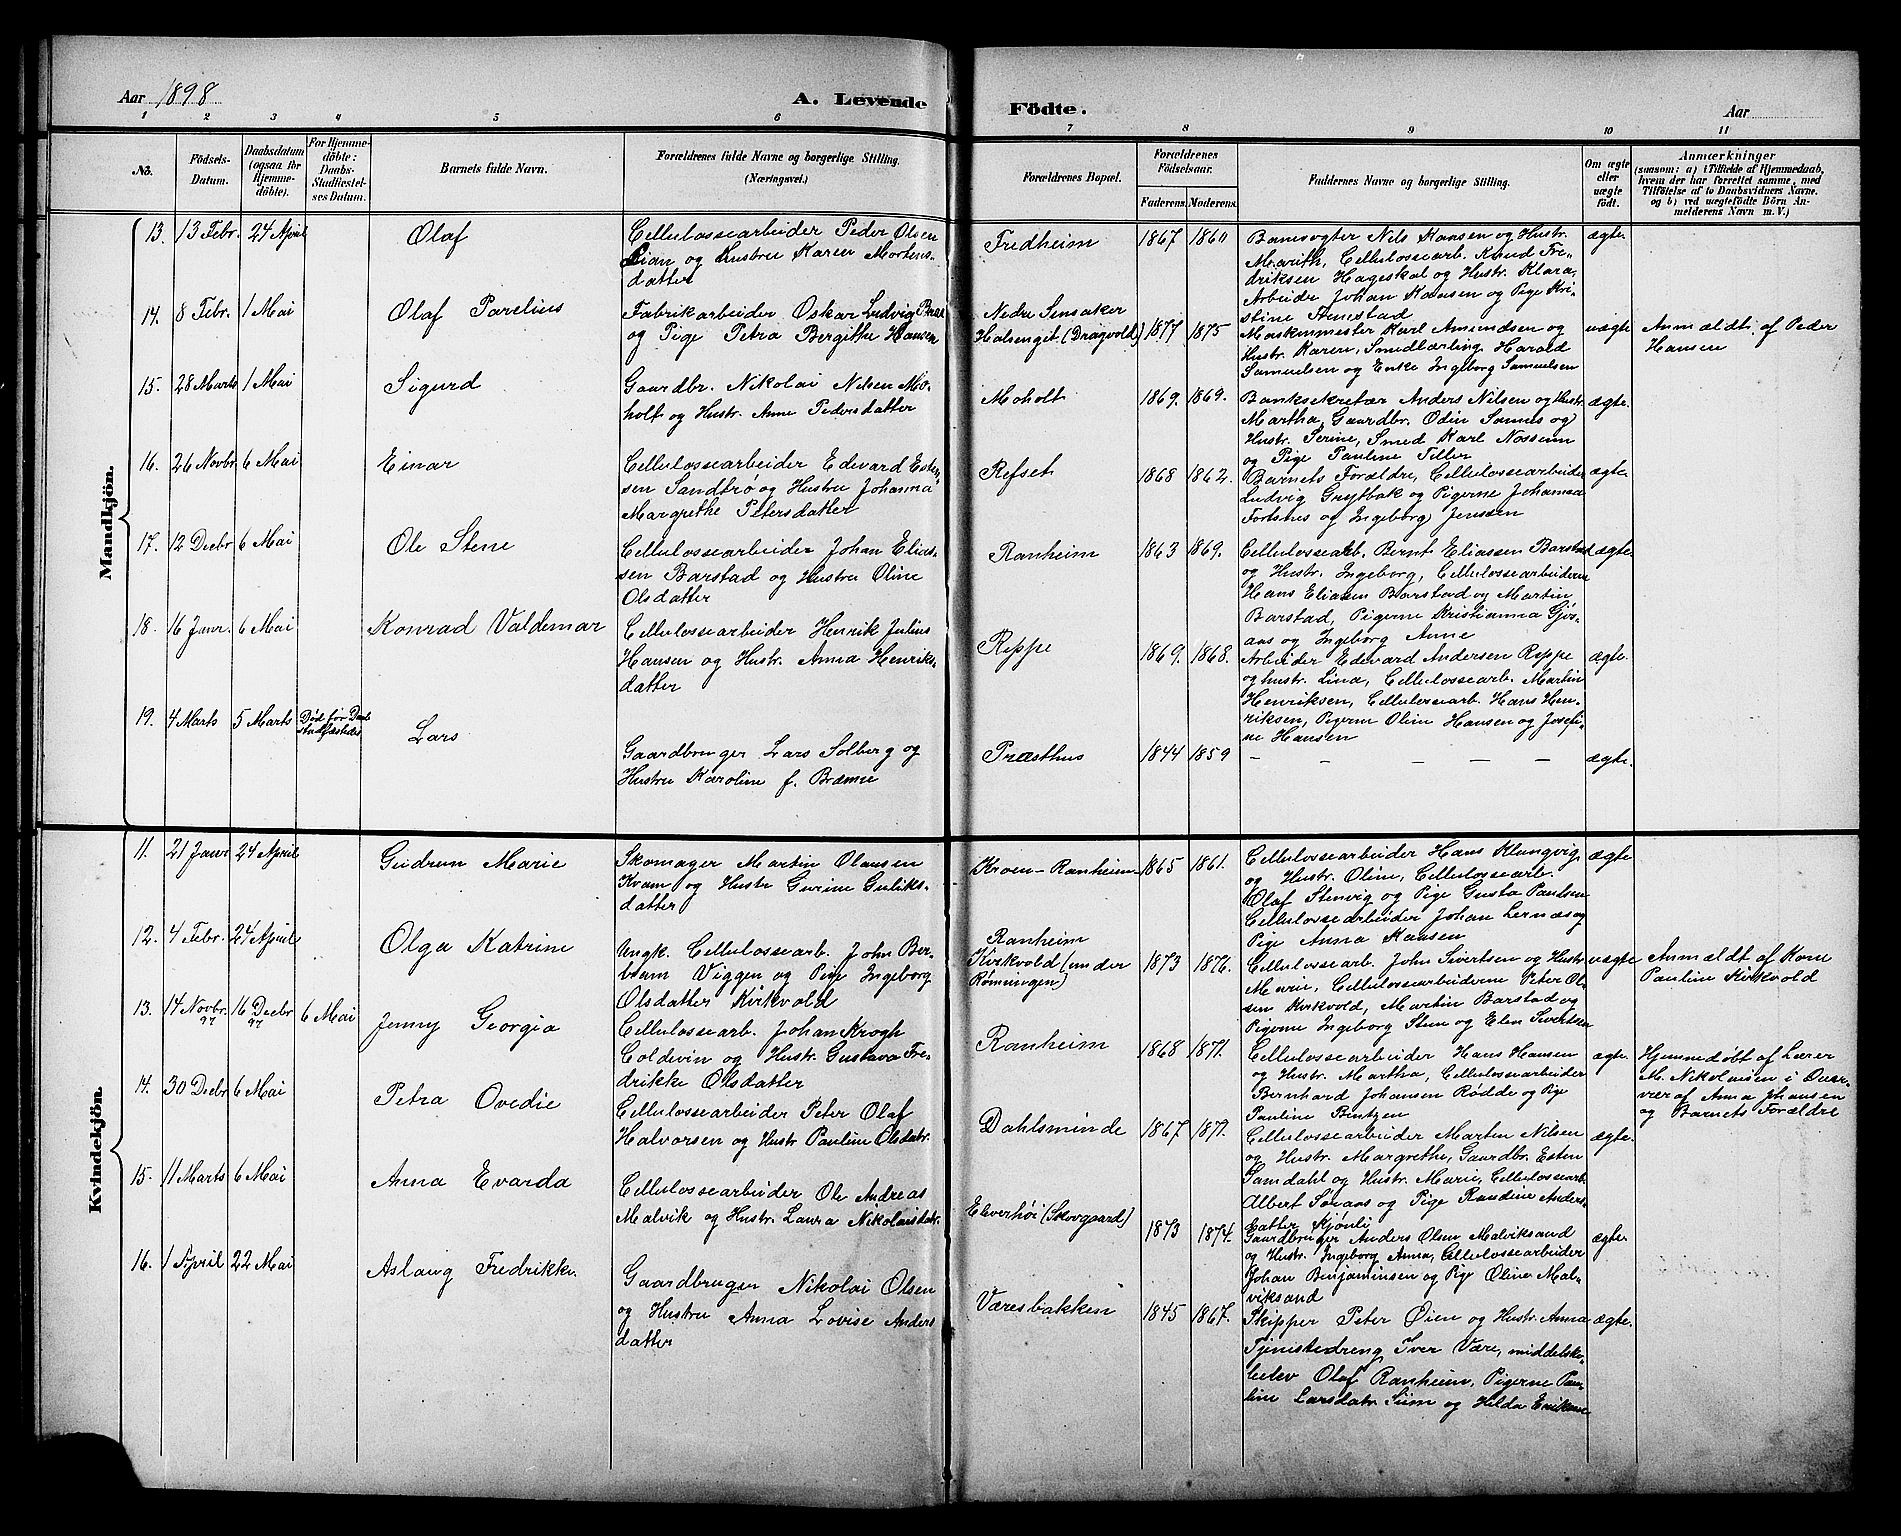 Aar 1898
A. Levende Födte.
Aar
1 2 3 4 5 6 7 8 9 10 11
No.
Födsels-
Datum.
Daabsdatum
(ogsaa for
Hjemme-
döbte).
For Hjemme-
döbte:
Daabs-
Stadfæstel-
ses Datum.
Barnets fulde Navn.
Forældrenes fulde Navne og borgerlige Stilling.
(Næringsvei.)
Forældrenes Bopæl.
Forældrenes
Födselsaar.
Faderens.
Moderens.
Faddernes Navne og borgerlige Stilling.
Om ægte
eller
uægte
födt.
Anmærkninger
(saasom: a) i Tilfælde af Hjemmedaab,
hvem der har forrettet samme, med
Tilföielse af to Daabsvidners Navne.
og b) ved uægtefödte Börn An-
melderens Navn m. V.)
Mandkjön.
13. 13 Febr. 24 April
Olaf
Cellulossearbeider Peder Olsen
Lian og Hustru Karen Mortens-
datter
Fredheim
1867 1860
Banevogter Nils Hansen og Hustr.
Marith, Cellulossearb. Knud Fre-
driksen Hageskal og Hustr. Klara,
Arbeider Johan Hansen og Pige Kri-
stine
ægte
14. 8 Febr. 1 Mai
Olaf Parelius
Fabrikarbeider Oskar Ludvig
og Pige Petra Bergithe Hansen
Nedre Sensaker
Halsenget (Dragvold)
1877 1875
Maskinmester Karl Amundsen og
Hustr. Karen, Smedlærling Harald
Samuelsen og Enke Ingeborg Samuelsen
uægte
Anmældt af Peder
Hansen
15. 28 Marts 1 Mai
Sigurd
Gaardbr. Nikolai Nilsen Mo-
holt og Hustr. Anne Pedersdatter
Moholt
1869. 1869.
Banksekretær Anders Nilsen og Hustr.
Martha, Gaardbr. Odin og
Hustr. Serine, Smed Karl Nossum
og Pige Pauline Tiller
ægte.
16. 26 Novbr. 6 Mai
Einar
Cellulossearbeider Edevard Esten-
sen Sandbrø og Hustru Johanna
Margrethe Petersdatter
Refset
1868 1862.
Barnets Forældre, Cellulossearbeider
Ludvig Grytbak og Pigerne Johanna
Fortsnes og Ingeborg Jenssen
ægte
17. 12 Decbr 6 Mai
Ole Stene
Cellulossearbeider Johan Elias-
sen Barstad og Hustru Oline
Olsdatter
Ranheim
1863 1869.
Cellulossearb. Bernt Eliassen Barstad
og Hustr. Ingeborg, Cellulossearbeiderne
Hans Eliasen Barstad og Martin
Barstad, Pigerne Kristianna Gjøs-
aas og Ingeborg Anne
ægte.
18. 16 Janr. 6 Mai
Konrad Valdemar
Cellulossearbeider Henrik Julius
Hansen og Hustr. Anna Henriks-
datter
Reppe
1869. 1868.
Arbeider Edevard Andersen Reppe
og hustr. Lina, Cellulossearb. Martin
Henriksen, Cellulosearb. Hans Hen-
riksen, Pigerne Oline Hansen og Josefi-
ne Hansen
ægte.
19. 4 Marts 5 Marts Død før Daab
stadfæstedes
Lars
Gaardbruger Lars Solberg og
Hustru Karoline f. Bræmne
Præsthus
1844 1859
— — — — —
ægte.
Kvindekjön.
11. 21 Janr 24 April
Gudrun Marie
Skomager Martin Olausen
Kvam og Hustr Gurine Guliks-
datter
Kroen-Ranheim
1865 1861.
Cellulossearbeider Hans Klungvig
og Hustr. Oline, Cellulossearb.
Olaf Stenvig og Pige Gusta Paulsen
Cellulossearbeider Johan Lernæs og
Pige Anna Hansen
ægte
12. 4 Febr. 24 April
Olga Katrine
Ungk. Cellulossearb. John Ber-
Viggen og Pige Ingeborg
Olsdatter Kirkvold
Ranheim
Kirkvold (under
Rønningen)
1873 1876.
Cellulossearb. John Sivertsen og Hustr
Marie, Cellulossearbeiderne Peter Ol-
sen Kirkvold, Martin Barstad og
Pigerne Ingeborg Stene og Elen Sivertsen
uægte
Anmældt af Kone
Pauline Kirkvold
13. 14 Novbr. 97 16 Decbr 97 6 Mai
Jenny Georgia
Cellulossearb. Johan Krogh
Coldevin og Hustr. Gustava Fre-
drikke Olsdatter
Ranheim
1868 1871.
Cellulossearbeider Hans Hansen
og Hustr. Martha, Cellulossearbeider
Bernhard Johansen Rødde og Pige
Pauline Bentzen
ægte.
Hjemmedøbt af Lærer
M. Nikolaisen i Over-
vær af Anna Johansen
og Barnets Forældre
14. 30 Decbr 6 Mai
Petra Ovedie
Cellulossearbeider Peter Olaf
Halvorsen og Hustr Pauline Olsdatr.
Dahlsminde
1867 1871.
Cellulossearbeider Morten Nilsen
og Hustr. Margrethe, Gaardbr. Esten
Samdahl og Hustr. Marie, Cellulossearb.
Albert Søraas og Pige Randine Anders-
datter Kjønli
ægte.
15. 11 Marts 6 Mai
Anna Evarda
Cellulossearbeider Ole Andreas
Malvik og Hustr. Laura Nikolaisdatr.
Elverhöi (Skovgaard)
1873 1874.
Gaardbruger Anders Olsen Malviksand
og Hustr. Ingeborg Anna, Cellulossearbeider
Johan Benjaminsen og Pige Oline Mal-
viksand
ægte.
16. 1 April 22 Mai
Aslaug Fredrikke.
Gaardbruger Nikolai Olsen
og Hustru Anna Lovise Anders
datter
Væresbakken
1845 1867.
Skipper Peter Øien og Hustr. Anna
Tjenestedreng Iver Være, middelsko-
leelev Olaf Ranheim, Pigerne Pau-
line Larsdatr. Siim og Hilda
ægte.